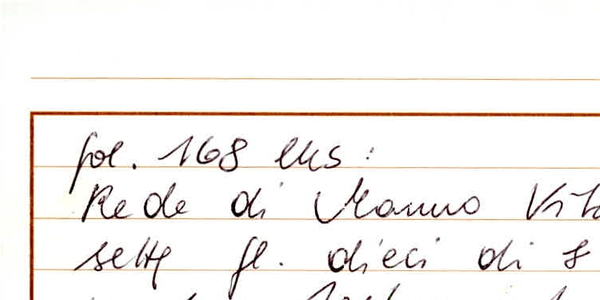 fol. 168 lks:
Rede di Manno
sette fl. dieci di 8